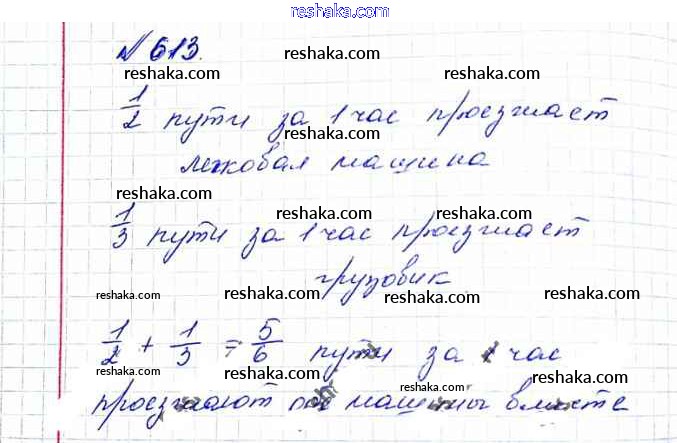 reshaka.com
№ 613. reshaka.com
reshaka.com reshaka.com reshaka.com
1/2 пути за 1 час проезжает
reshaka.com reshaka.com reshaka.com
легковая машина
reshaka.com reshaka.com reshaka.com
1/3 пути за 1 час проезжает
грузовик
reshaka.com reshaka.com reshaka.com
1/2 + 1/3 = 5/6 пути за 1 час
reshaka.com reshaka.com reshaka.com
проезжают машины вместе
reshaka.com reshaka.com